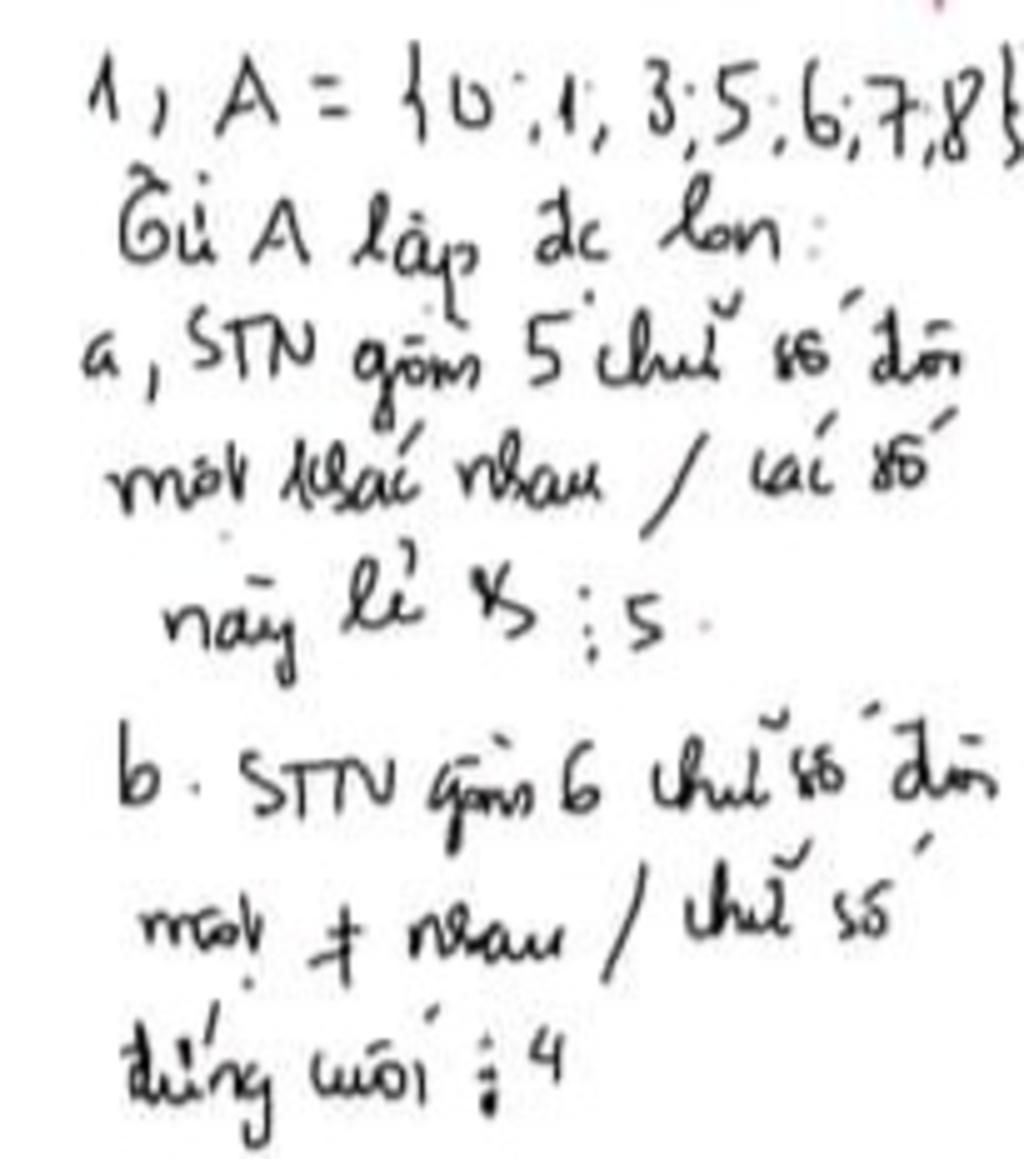 1, A = {0; 1; 3; 5; 6; 7; 8}
Từ A lập đc bn:
a, STN gồm 5 chữ số đôi
một khác nhau / các số
này lẻ k ⋮ 5.
b. STN gồm 6 chữ số đôi
một ≠ nhau / chữ số
đứng cuối ⋮ 4